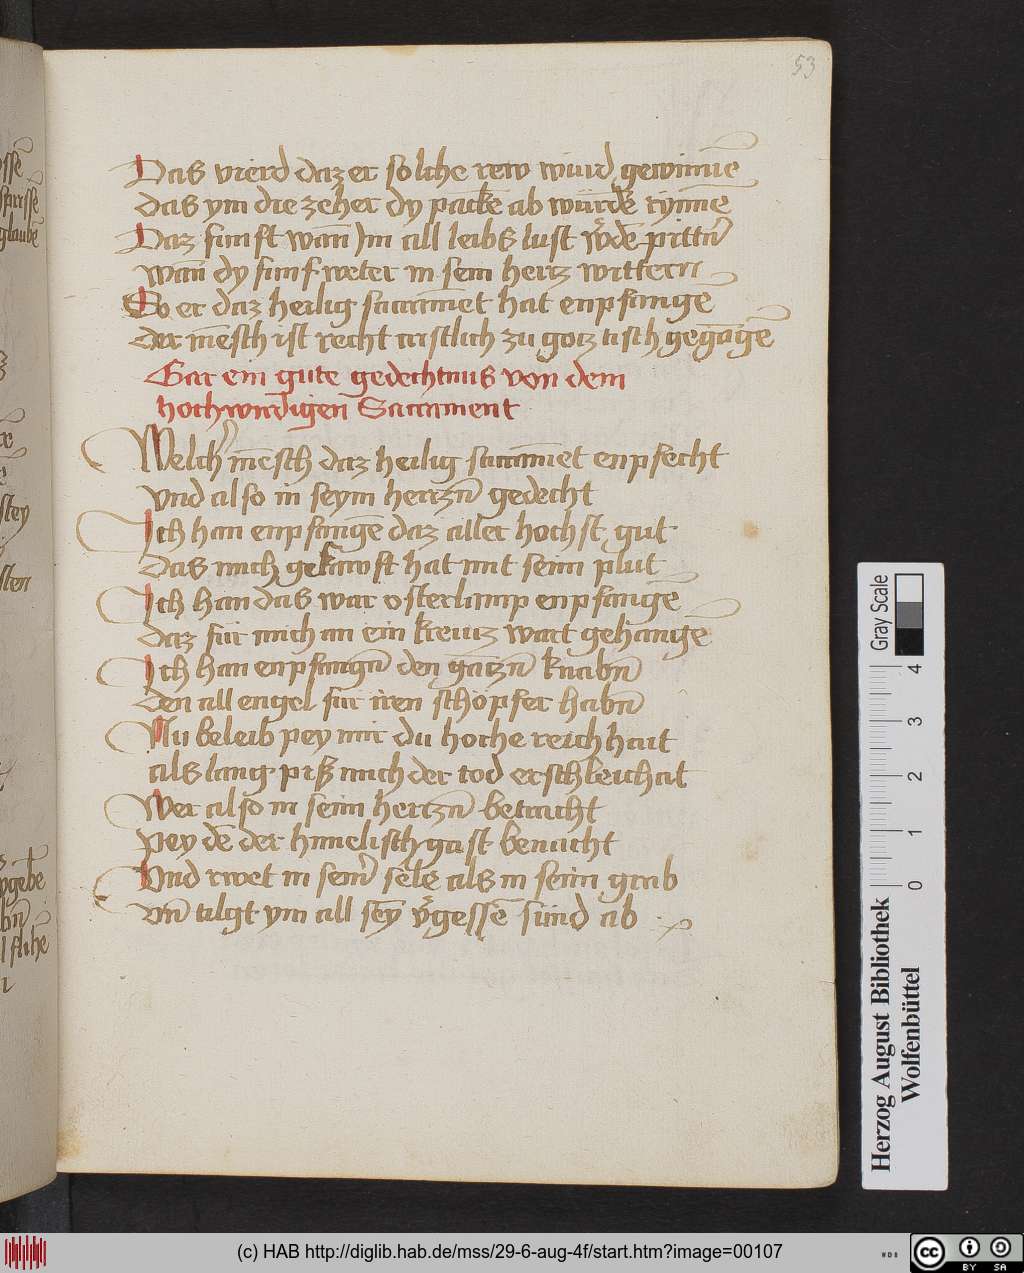 53
Das vierd daz er solche rew wurd gewinnē
das ym die zeher dy packē ab würdē rynnē
Daz funft wan Im all leibs lust w̉dē pittn̄
wan dy funf weter in sein hertz wittern
So er daz heilig sacramēt hat enpfangē
der mēsch ist recht cristlich zu gotz tisch gegāgē
Gar ein gute gedechtnus von dem
hochwirdigen Sacrament
Welch mēsch daz heilig sacramēt enpfecht
vnd also in seym hertzn̄ gedecht
Ich han enpfangē daz aller hochst gut
das mich gekawft hat mit seim plut
Ich han das war osterlamp enpfangē
daz fur mich an ein kreutz wart gehangē
Ich han enpfangn̄ den gantzn̄ knabn̄
den all engel fur iren schopfer habn̄
Nu beleib pey mir du hoche reichhait
als lang piß mich der tod erschleichat
Wer also in seim hertzn̄ betracht
pey dē der himelisch gast benacht
Vnd rwet in sein̉ sele als in seim grab
vn̄ tilgt ym all sey v̉gessē sund ab
Gray Scale
0 1 2 3 4
Herzog August Bibliothek
Wolfenbüttel
(c) HAB http://diglib.hab.de/mss/29-6-aug-4f/start.htm?image=00107
cc BY SA